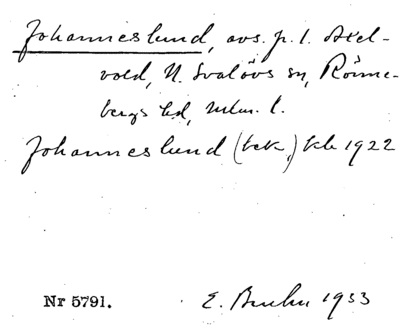 Johanneslund, avs. p. 1. Axel-
vold, N. Svalövs sn, Rönne-
bergs hd, Mlm. l.
Johanneslund (bek.) kb 1922
Nr 5791. E. 1933